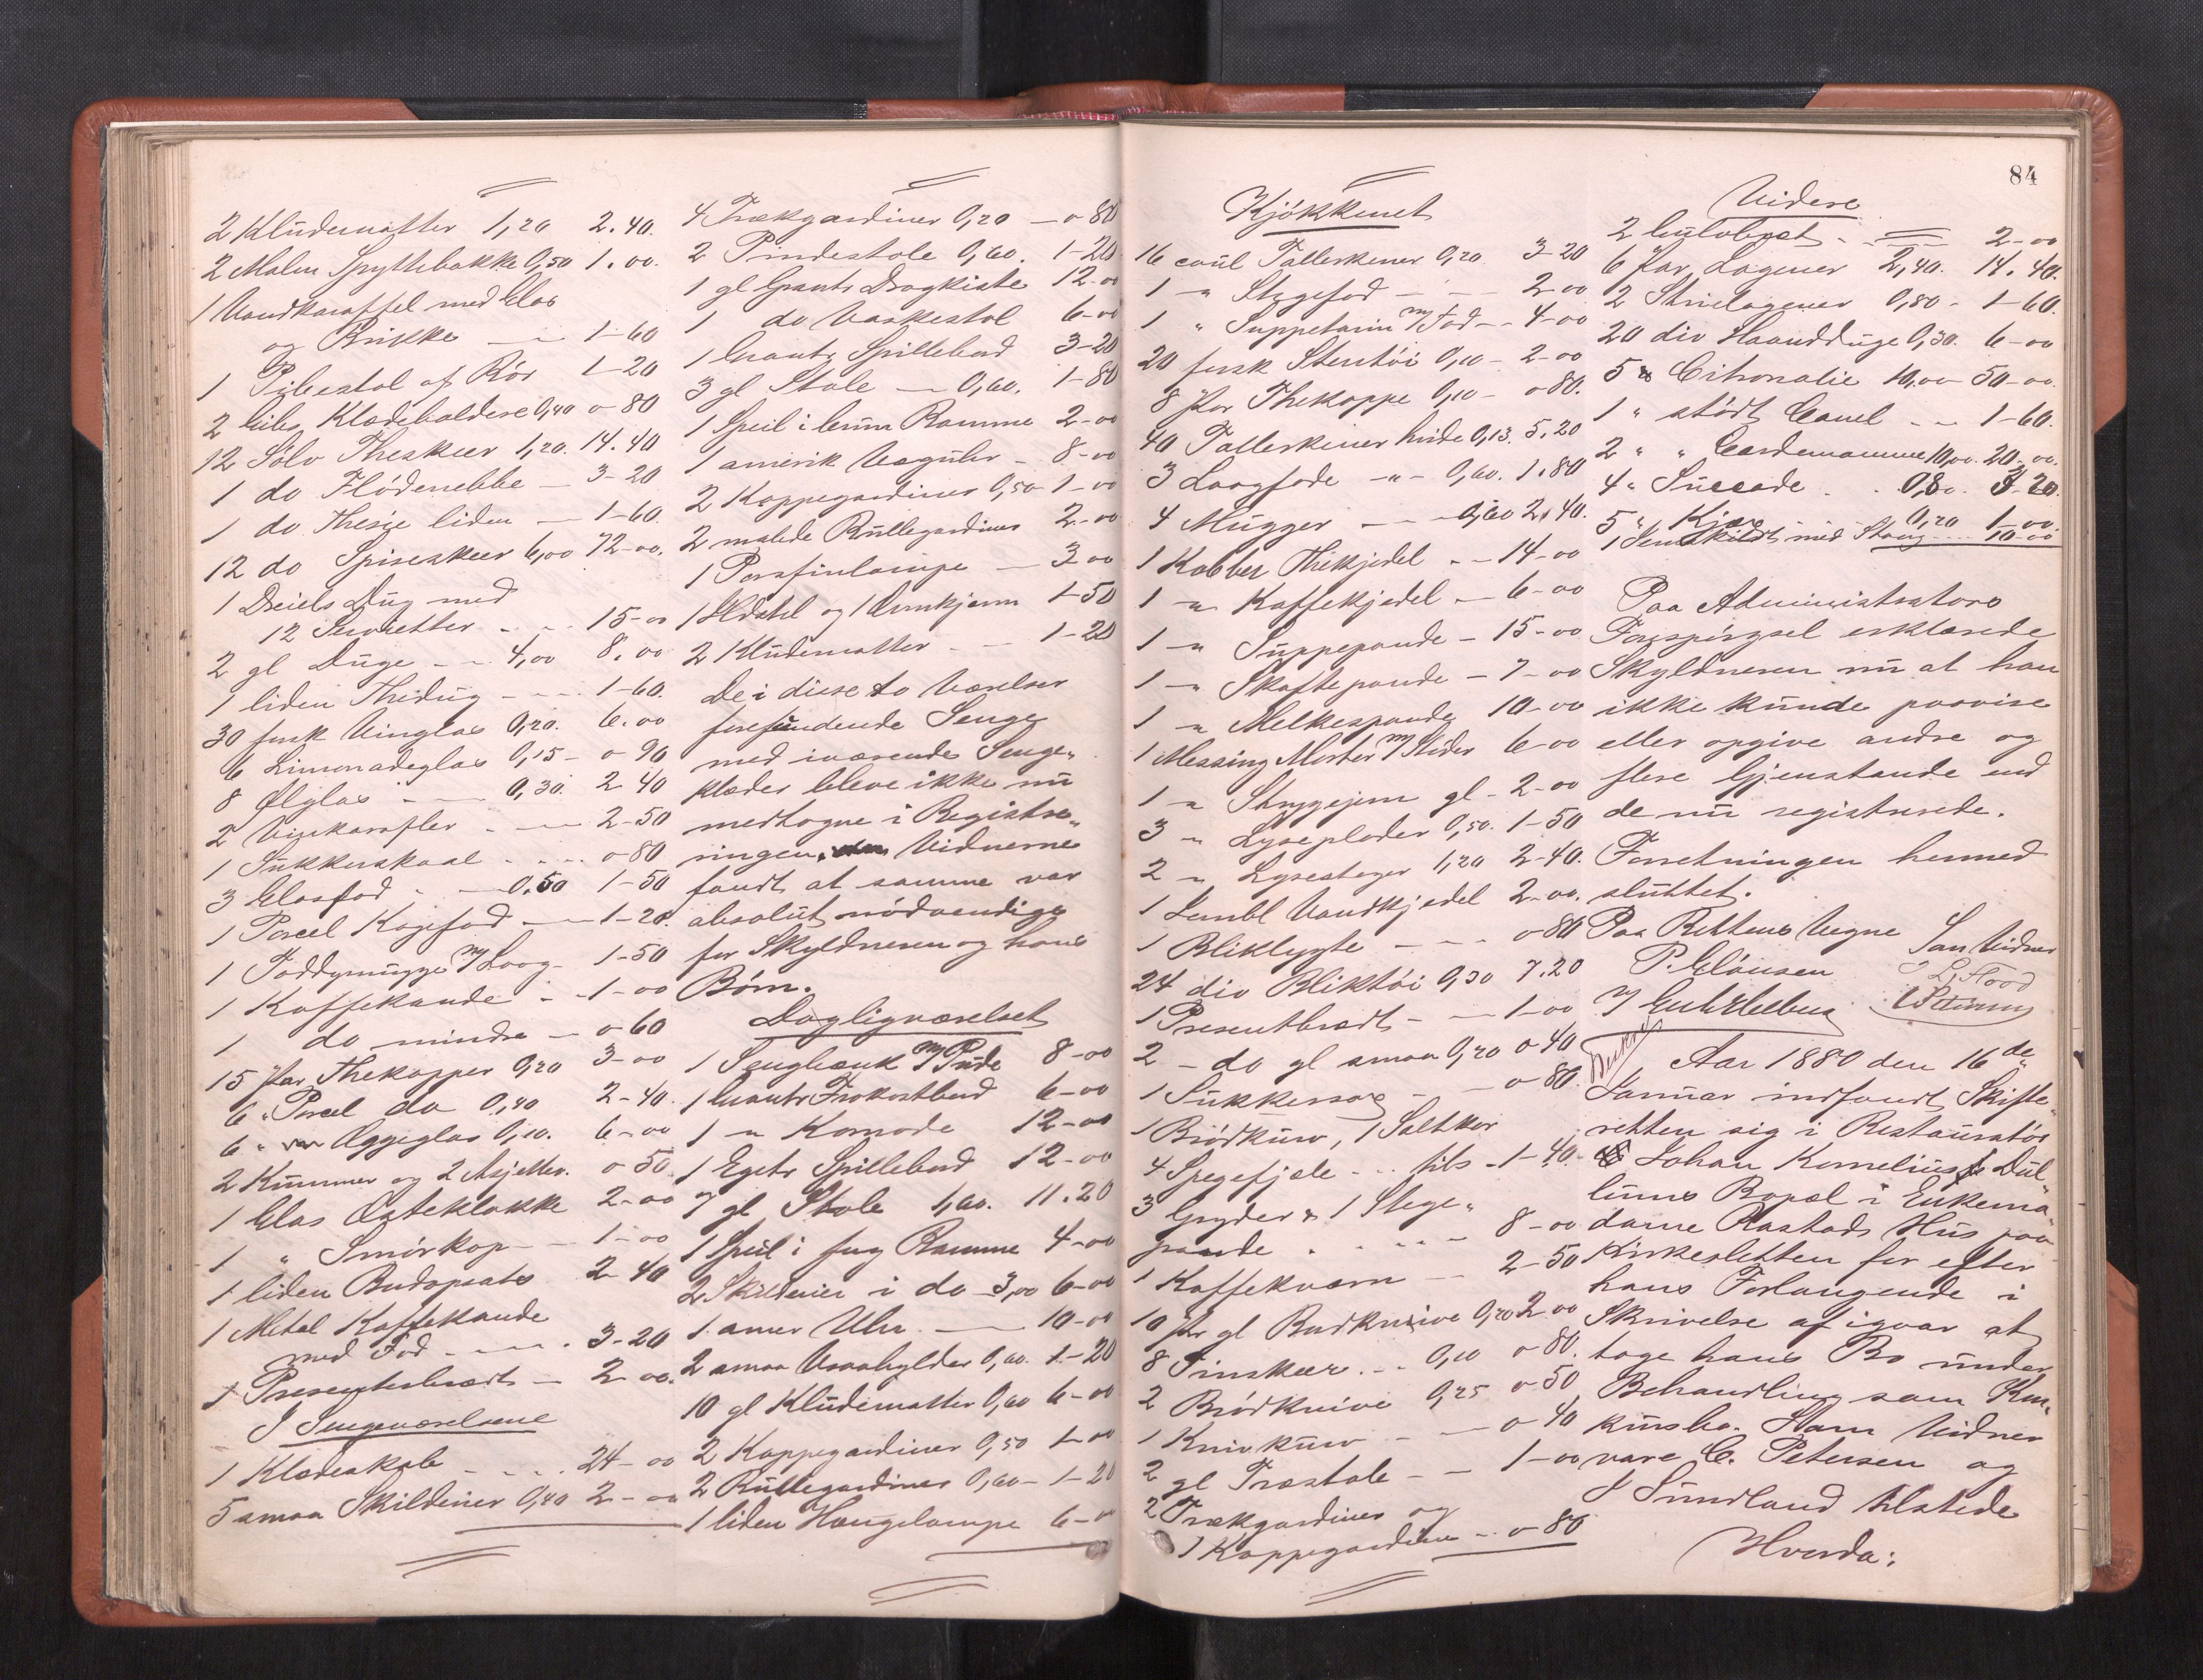 2 Kludematter 1,20 2.40.
2 Malm Spyttebakke 0,50 1.00.
1 Vandkaraffel med Glas
og Brikke — 1-60
1 Pibestol af Rör 1-20
2 Gibs Klædeholdere 0,40 0-80
12 Sölv Theskeer 1,20. 14.40
1 do Flödenebbe — 3-20
1 do Thesie liden — 1-60.
12 do Spiseskeer 6,00 72-00.
1 Dreiels Dug med
12 Servietter - - 15-00
2 gl Duge - - 4,00 8.00
1 liden Thedug - - - 1-60.
30 forsk Vinglas 0,20. 6.00
6 Limonadeglas 0,15 - 0-90
8 Ølglas - — 0,30. 2-40
2 Vinkarafler - — 2-50
1 Sukkerskaal - - - 0-80
3 Glasfad - — 0,50 1-50
1 Porcel Kagefad — 1-20.
1 Toddymugge m/ Laag - 1-50
1 Kaffekande - - 1-00
1 do mindre — 0-60
15 Par Thekopper 0,20 3-00
6 " Porcel do 0,40 2-40.
6 " Æggeglas 0,10. 6-00
2 Kummer og 2 Asjetter. 0-50
1 Glas Osteklokke 2-00
1 " Smörkop — 1-00
1 liden Budopsats 2-40
1 Metal Kaffekande
med Fod - — . 3-20
1 Presenterbræt — 2-00.
I Sengeværelserne
1 Klædeskab - - - 24-00
5 smaa Skilderier 0,40 2-00
4 Trækgardiner 0,20 — 0-80
2 Pindestole 0,60. 1-20
1 gl Grants Dragkiste 12-00
1 do Vaskestol 6-00
1 Grants Spillebord 3-20
3 gl Stole — 0,60. 1-80
1 Speil i brun Ramme 2-00
1 amerik Væguhr - 8-00
2 Kappegardiner 0,50 - 1-00
2 malede Rullegardiner 2-00
1 Parafinlampe — 3-00
1 Ildstel og 1 Ovnkjærm 1-50
2 Kludematter - — 1-20
De i disse to Værelser
forefundende Senge
med iværende Senge„
klæder bleve ikke nu
medtagne i Registre„
ringen, Vidnerne
fandt at samme var
absolut nödvendige
for Skyldneren og hans
Börn.
Dagligværelset
1 Sengbænk m/ Pude 8-00
1 Grants Frokostbord 6-00
1 " Komode 12-00
1 Egetr Spillebord 12-00
7 gl Stole 1,60. 11.20
1 Speil i Ramme 4-00
2 Skilderier i do 3,00 6-00
1 amer Uhr — 10-00
2 smaa Vraahylder 0,60. 1-20
10 gl Kludematter 0,60 6-00
2 Kappegardiner 0,50 1-00
2 Rullegardiner 0,60 - 1-20
1 liden Hængelampe 6-00
84
Kjökkenet
16 coul Tallerkener 0,20 3-20
1 " Stegefad - — 2-00
1 " Suppeterin m/ Fad - - 4-00
20 forsk Stentöi 0,10 - 2-00
8 Par Thekoppe 0,10 - 0-80.
40 Tallerkener hvide 0,13. 5.20
3 Laagfade - " - 0,60. 1.80
4 Mugger — 0,60 2.40.
1 Kobber Thekjedel - - 14-00
1 " Kaffekjedel - 6-00
1 " Suppepande - 15-00
1 " Skaftepande - 7-00
1 " Melkespande 10-00
1 Messing Morter m/ Stöder 6-00
1 " Strygejern gl - 2-00
3 " Lyseplader 0,50. 1-50
2 " Lysestager 1,20 2-40.
1 Jernbl Vandkjedel 2-00.
1 Bliklygte — - 0-80
24 div Bliktöi 0,30 7.20
1 Presentbræt - — 1-00
2 - do gl smaa 0,20 0-40
1 Sukkersax — 0-80.
1 Brödkurv, 1 Saltkar
4 Spegefjæle - - tils - 1-40.
3 Gryder & 1 Stege„
pande - - - - 8-00
1 Kaffekværn — 2-50
10 Par gl Bordknive 0,20 2-00
8 Tinskeer - - 0,10 0-80.
2 Brödknive 0,25 0-50
1 Knivkurv - — 0-40
2 gl Træstole - - 1-00
2 Trækgardiner og
1 Kappegardin - - 0-80
Videre
6 Par Lagener 2,40. 14.40.
2 Strielagener 0,80 - 1-60.
20 div Haandduge 0,30. 6-00
5 Citronolie 10,00 - 50-00.
1 " stödt Canel - - 1-60.
2 " " Cardemomme 10,00. 20-00.
4 " Succade - - 0,80. 3-20.
5 " 0,20 1-00.
Paa Administrators
Forespörgsel erklærede
Skyldneren nu at han
ikke kunde paavise
eller opgive andre og
flere Gjenstande end
de nu registrerede.
Forretningen hermed
sluttet.
Paa Rettens Vegne
P. Clausen
Som Vidner
J L Flood
Aar 1880 den 16de
Januar indfandt Skifte„
retten sig i Restauratör
Johan Kornelius Dul„
lums Bopæl i Enkema„
dame Rastads Hus paa
Kirkesletten for efter
hans Forlangende i
Skrivelse af igaar at
tage hans Bo under
Behandling som Kon„
kursbo. Som Vidner
vare C. Petersen og
J Sundland tilstede
Hvorda: